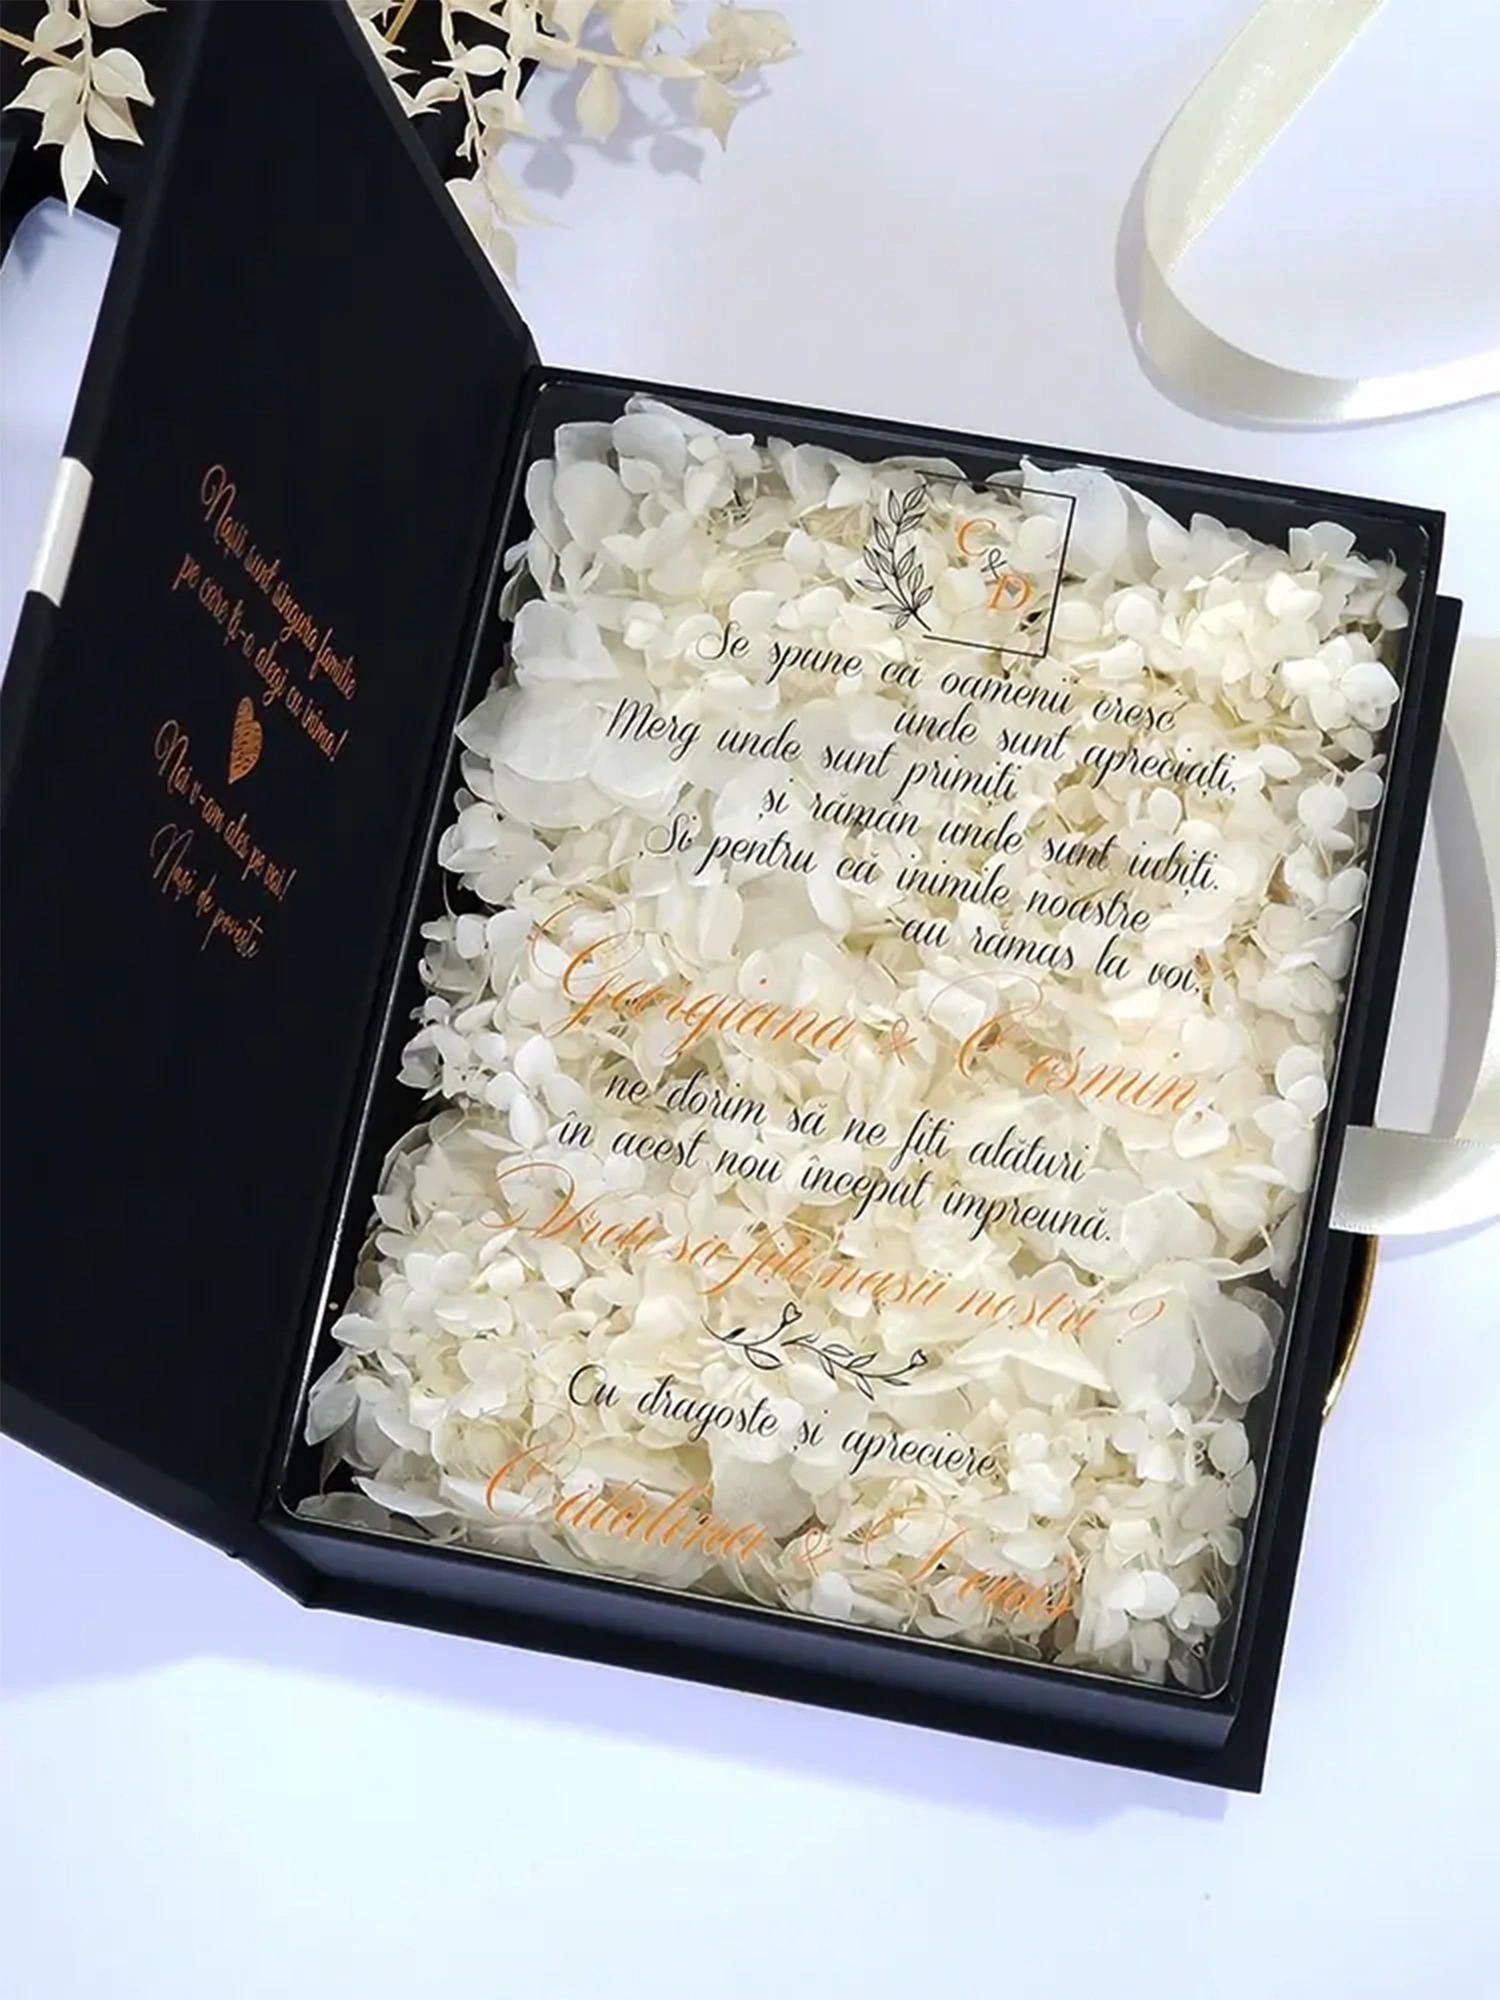 Nașii sunt singura familie
pe care ți-o alegi cu inima!
Noi v-am ales pe voi!
Nași de poveste
C
&
D
Se spune că oamenii cresc
unde sunt apreciați,
Merg unde sunt primiți
și rămân unde sunt iubiți.
Și pentru că inimile noastre
au rămas la voi,
Georgiana & Cosmin,
ne dorim să ne fiți alături
în acest nou început împreună.
Vreți să fiți nașii noștri ?
Cu dragoste și apreciere,
Catalina & Denis